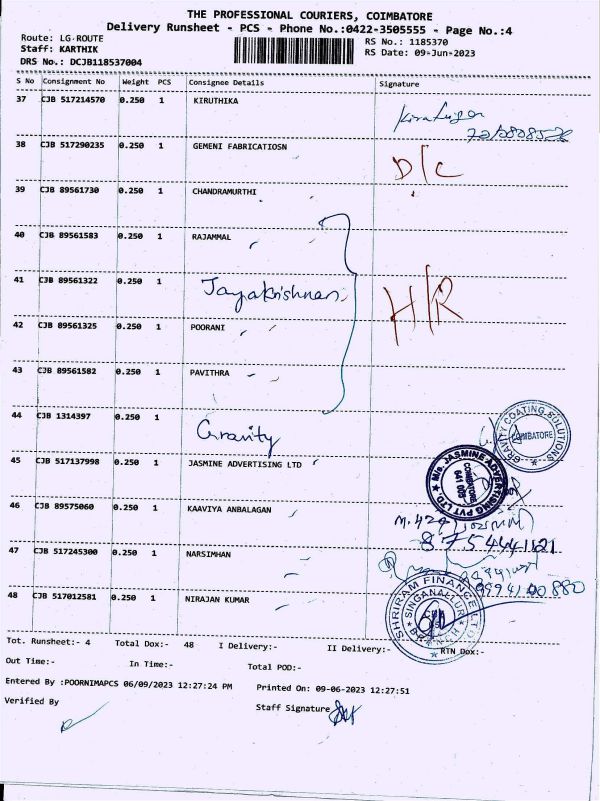 THE PROFESSIONAL COURIERS, COIMBATORE
Delivery Runsheet - PCS - Phone No.:0422-3505555 - Page No.:4
Route: LG-ROUTE
RS No.: 1185370
Staff: KARTHIK
RS Date: 09-Jun-2023
DRS No.: DCJB118537004
S No Consignment No Weight PCS Consignee Details Signature
37 CJB 517214570 0.250 1 KIRUTHIKA
38 CJB 517290235 0.250 1 GEMENI FABRICATIOSN D/C
39 CJB 89561730 0.250 1 CHANDRAMURTHI
40 CJB 89561583 0.250 1 RAJAMMAL
41 CJB 89561322 0.250 1 Jayakrishnan H/R
42 CJB 89561325 0.250 1 POORANI
43 CJB 89561582 0.250 1 PAVITHRA
44 CJB 1314397 0.250 1 Gravity
COATING SOLUTIONS COIMBATORE
45 CJB 517137998 0.250 1 JASMINE ADVERTISING LTD
M/s. JASMINE ADVERTISING PVT LTD. COIMBATORE 641 005
46 CJB 89575060 0.250 1 KAAVIYA ANBALAGAN
8754441121
47 CJB 517245300 0.250 1 NARSIMHAN
48 CJB 517012581 0.250 1 NIRAJAN KUMAR
SHRIRAM FINANCE LTD SINGANALLUR BRANCH
Tot. Runsheet:- 4 Total Dox:- 48 I Delivery:- II Delivery:- RTN Dox:-
Out Time:- In Time:- Total POD:-
Entered By :POORNIMAPCS 06/09/2023 12:27:24 PM Printed On: 09-06-2023 12:27:51
Verified By Staff Signature